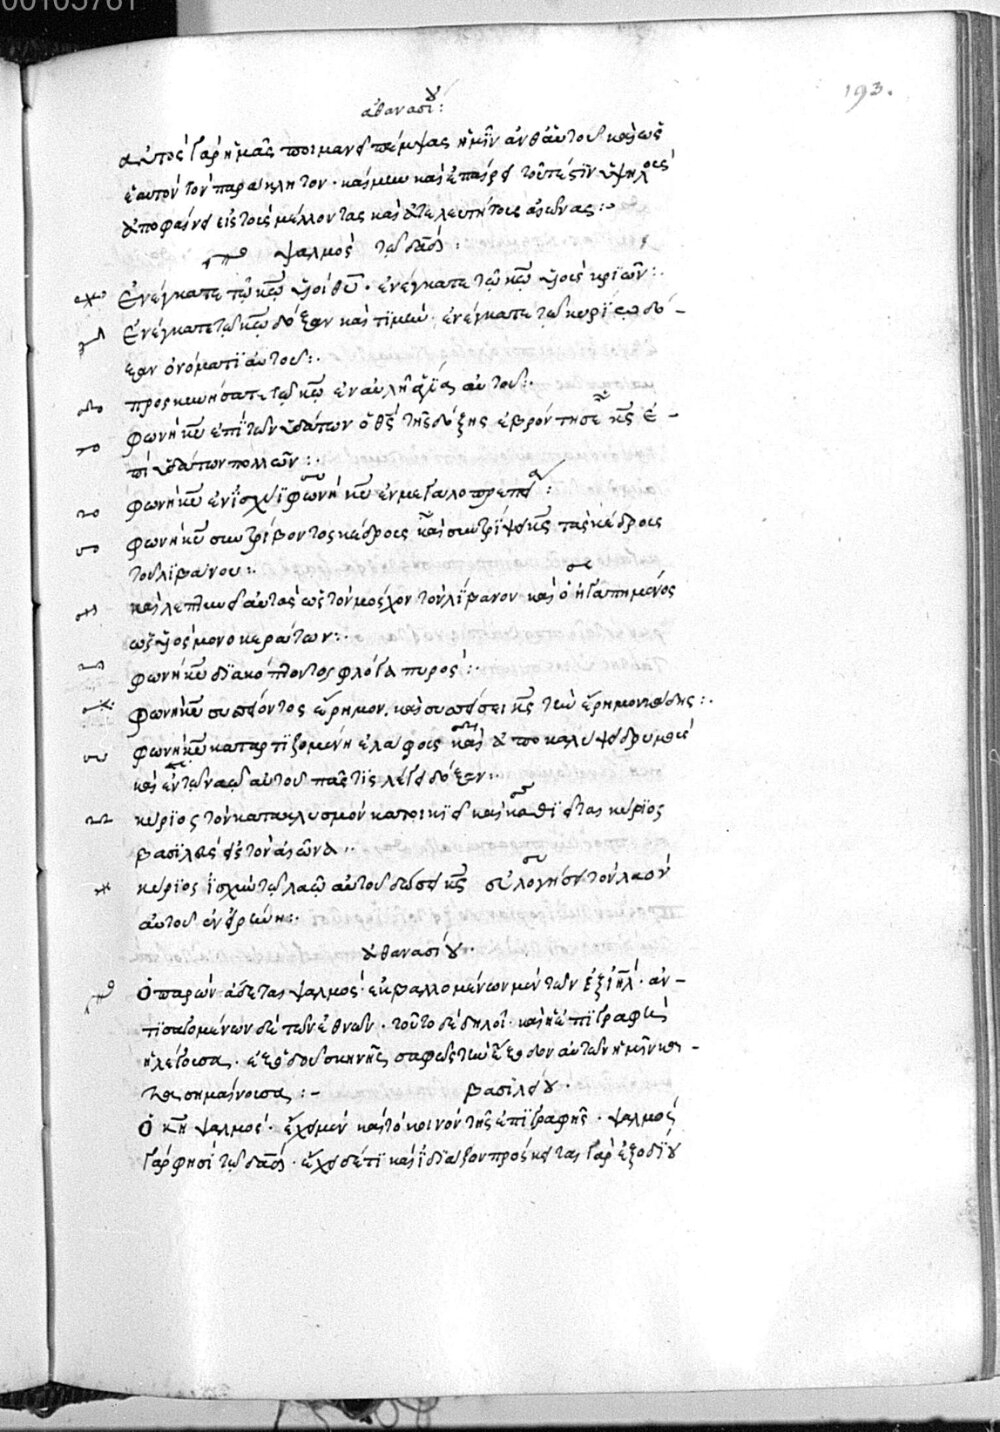 00105761
193.
ἀθανασίου:
αὐτὸς γὰρ ἡμᾶς ποιμανεῖ πέμψας ἡμῖν ἀνθ' αὑτοῦ καὶ ὡς
ἑαυτὸν τὸν παράκλητον. καὶ μὴν καὶ ἐπαίρει τουτέστιν ὑψηλοὺς
ἀποφαίνει εἰς τοὺς μέλλοντας καὶ ἀτελευτήτους αἰῶνας:
ψαλμὸς τῷ δαδ:
Ἐνέγκατε τῷ κω υἱοὶ θυ. ἐνέγκατε τῷ κω υἱοὺς κριῶν:.
Ἐνέγκατε τῷ κω δόξαν καὶ τιμήν. ἐνέγκατε τῷ κυρίῳ δό-
ξαν ὀνόματι αὐτοῦ:.
προσκυνήσατε τῷ κω ἐν αὐλῇ ἁγίᾳ αὐτοῦ:.
Φωνὴ κυ ἐπὶ τῶν ὑδάτων ὁ θς τῆς δόξης ἐβρόντησε κς ἐ-
πὶ ὑδάτων πολλῶν:.
φωνὴ κυ ἐν ἰσχύϊ φωνὴ κυ ἐν μεγαλοπρεπείᾳ:
φωνὴ κυ συντρίβοντος κέδρους καὶ συντρίψει κς τὰς κέδρους
τοῦ λιβάνου:.
καὶ λεπτυνεῖ αὐτὰς ὡς τὸν μόσχον τὸν λίβανον καὶ ὁ ἠγαπημένος
ὡς υἱὸς μονοκερώτων:.
φωνὴ κυ διακόπτοντος φλόγα πυρός:.
φωνὴ κυ συσείοντος ἔρημον. καὶ συσσείσει κς τὴν ἔρημον κάδης:.
φωνὴ κυ καταρτιζομένη ἐλάφους καὶ ἀποκαλύψει δρυμοὺς
καὶ ἐν τῷ ναῷ αὐτοῦ πᾶς τις λέγει δόξαν:.
κύριος τὸν κατακλυσμὸν κατοικιεῖ καὶ καθιεῖται κύριος
βασιλεὺς εἰς τὸν αἰῶνα:.
κύριος ἰσχὺν τῷ λαῷ αὐτοῦ δώσει κς εὐλογήσει τὸν λαὸν
αὐτοῦ ἐν εἰρήνῃ:.
ἀθανασίου.
Ὁ παρὼν ᾄδεται ψαλμὸς ἐκβαλλομένων μὲν τῶν ἐξ ιηλ. ἀν-
τισαγομένων δὲ τῶν ἐθνῶν. τοῦτο δὲ δηλοῖ. καὶ ἡ ἐπιγραφὴ
ἡ λέγουσα. ἐξοδίου σκηνῆς σαφῶς τὴν ἔξοδον αὐτῶν ἡμῖν κα-
τασημαίνουσα:- βασιλείου.
Ὁ κη ψαλμὸς. ἔχει μὲν καὶ τὸ κοινὸν τῆς ἐπιγραφῆς. ψαλμὸς
γὰρ φησὶ τῷ δαδ. ἔχει δέ τι καὶ ἰδιάζον πρόσκειται γὰρ ἐξοδίου